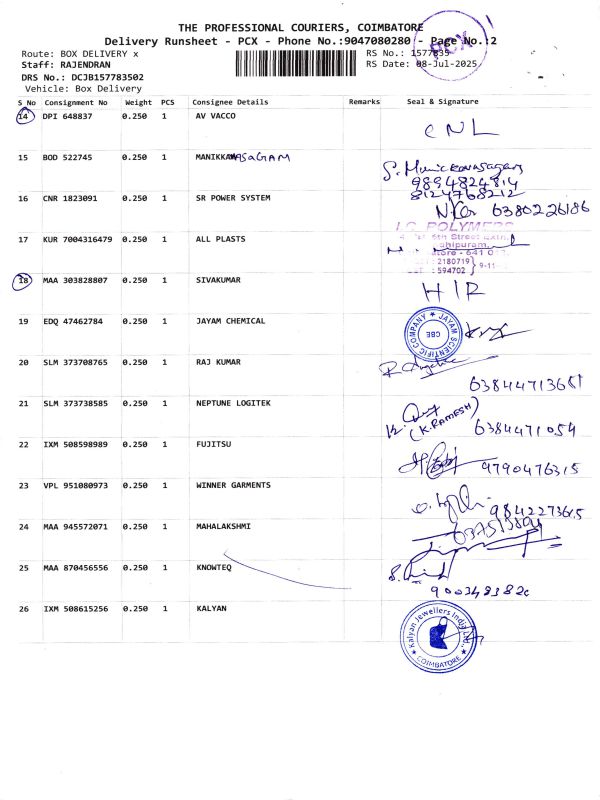 THE PROFESSIONAL COURIERS, COIMBATORE
Delivery Runsheet - PCX - Phone No.:9047080280 - Page No.:2
Route: BOX DELIVERY x
RS No.: 1577835
Staff: RAJENDRAN
RS Date: 08-Jul-2025
DRS No.: DCJB157783502
Vehicle: Box Delivery
S No Consignment No Weight PCS Consignee Details Remarks Seal & Signature
14 DPI 648837 0.250 1 AV VACCO
CNL
15 BOD 522745 0.250 1 MANIKKAVASAGAM
S. Manickavasagam
9894824814
8124768212
16 CNR 1823091 0.250 1 SR POWER SYSTEM
6380226186
17 KUR 7004316479 0.250 1 ALL PLASTS
POLYMERS
5th Street Extn.
641 0
2180719
594702
18 MAA 303828807 0.250 1 SIVAKUMAR
HIR
19 EDQ 47462784 0.250 1 JAYAM CHEMICAL
JAYAM SCIENTIFIC COMPANY
CBE
20 SLM 373708765 0.250 1 RAJ KUMAR
21 SLM 373738585 0.250 1 NEPTUNE LOGITEK
(K.RAMESH)
6384471054
22 IXM 508598989 0.250 1 FUJITSU
9790476315
23 VPL 951080973 0.250 1 WINNER GARMENTS
24 MAA 945572071 0.250 1 MAHALAKSHMI
25 MAA 870456556 0.250 1 KNOWTEQ
26 IXM 508615256 0.250 1 KALYAN
Kalyan Jewellers India Ltd.,
COIMBATORE